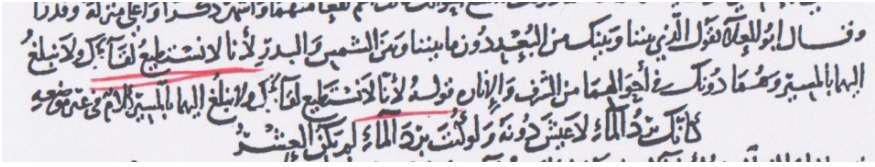 وقال ابو العلاء يقول الذي بيننا وبينك من البعد دون ما بيننا وبين الشمس والبدر لأنا لا نستطيع لقآءك ولا نبلغ
اليها بالمسير وهما دونك في أحوالهما من الشرف والإنارة قوله لأنا لا نستطيع لقآءك ولا نبلغ اليها بالمسير كلام في غير موضعه
كأنك برد المآء لا عيش دونه ولو كنت برد المآء لم يكن العشر